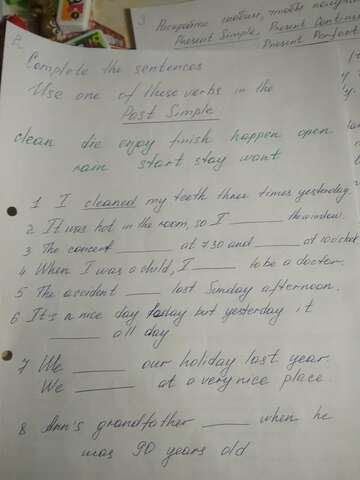 3 Раскройте скобки,
Present Simple, Present Contin
Present Perfect
Complete the sentences
Use one of these verbs in the
Past Simple
clean die enjoy finish happen open
rain start stay want
1 I cleaned my teeth three times yesterday
2 It was hot in the room, so I ____ the window.
3 The concert ____ at 7 30 and ____ at 10 o'clock
4 When I was a child, I ____ to be a doctor.
5 The accident ____ last Sunday afternoon.
6 It's a nice day today but yesterday it
____ all day
7 We ____ our holiday last year.
We ____ at a very nice place.
8 Ann's grandfather ____ when he
was 90 years old